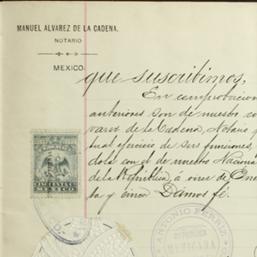 MANUEL ALVAREZ DE LA CADENA.
NOTARIO
MEXICO.
que suscribimos,
En comprobacion
anteriores son de nuestro
varez de la Cadena, Notario
tual ejercicio de sus funciones,
dola con el de nuestro Naciona
de la República, á once de Ene
ta y cinco Damos fé.
ANTONIO FERRER